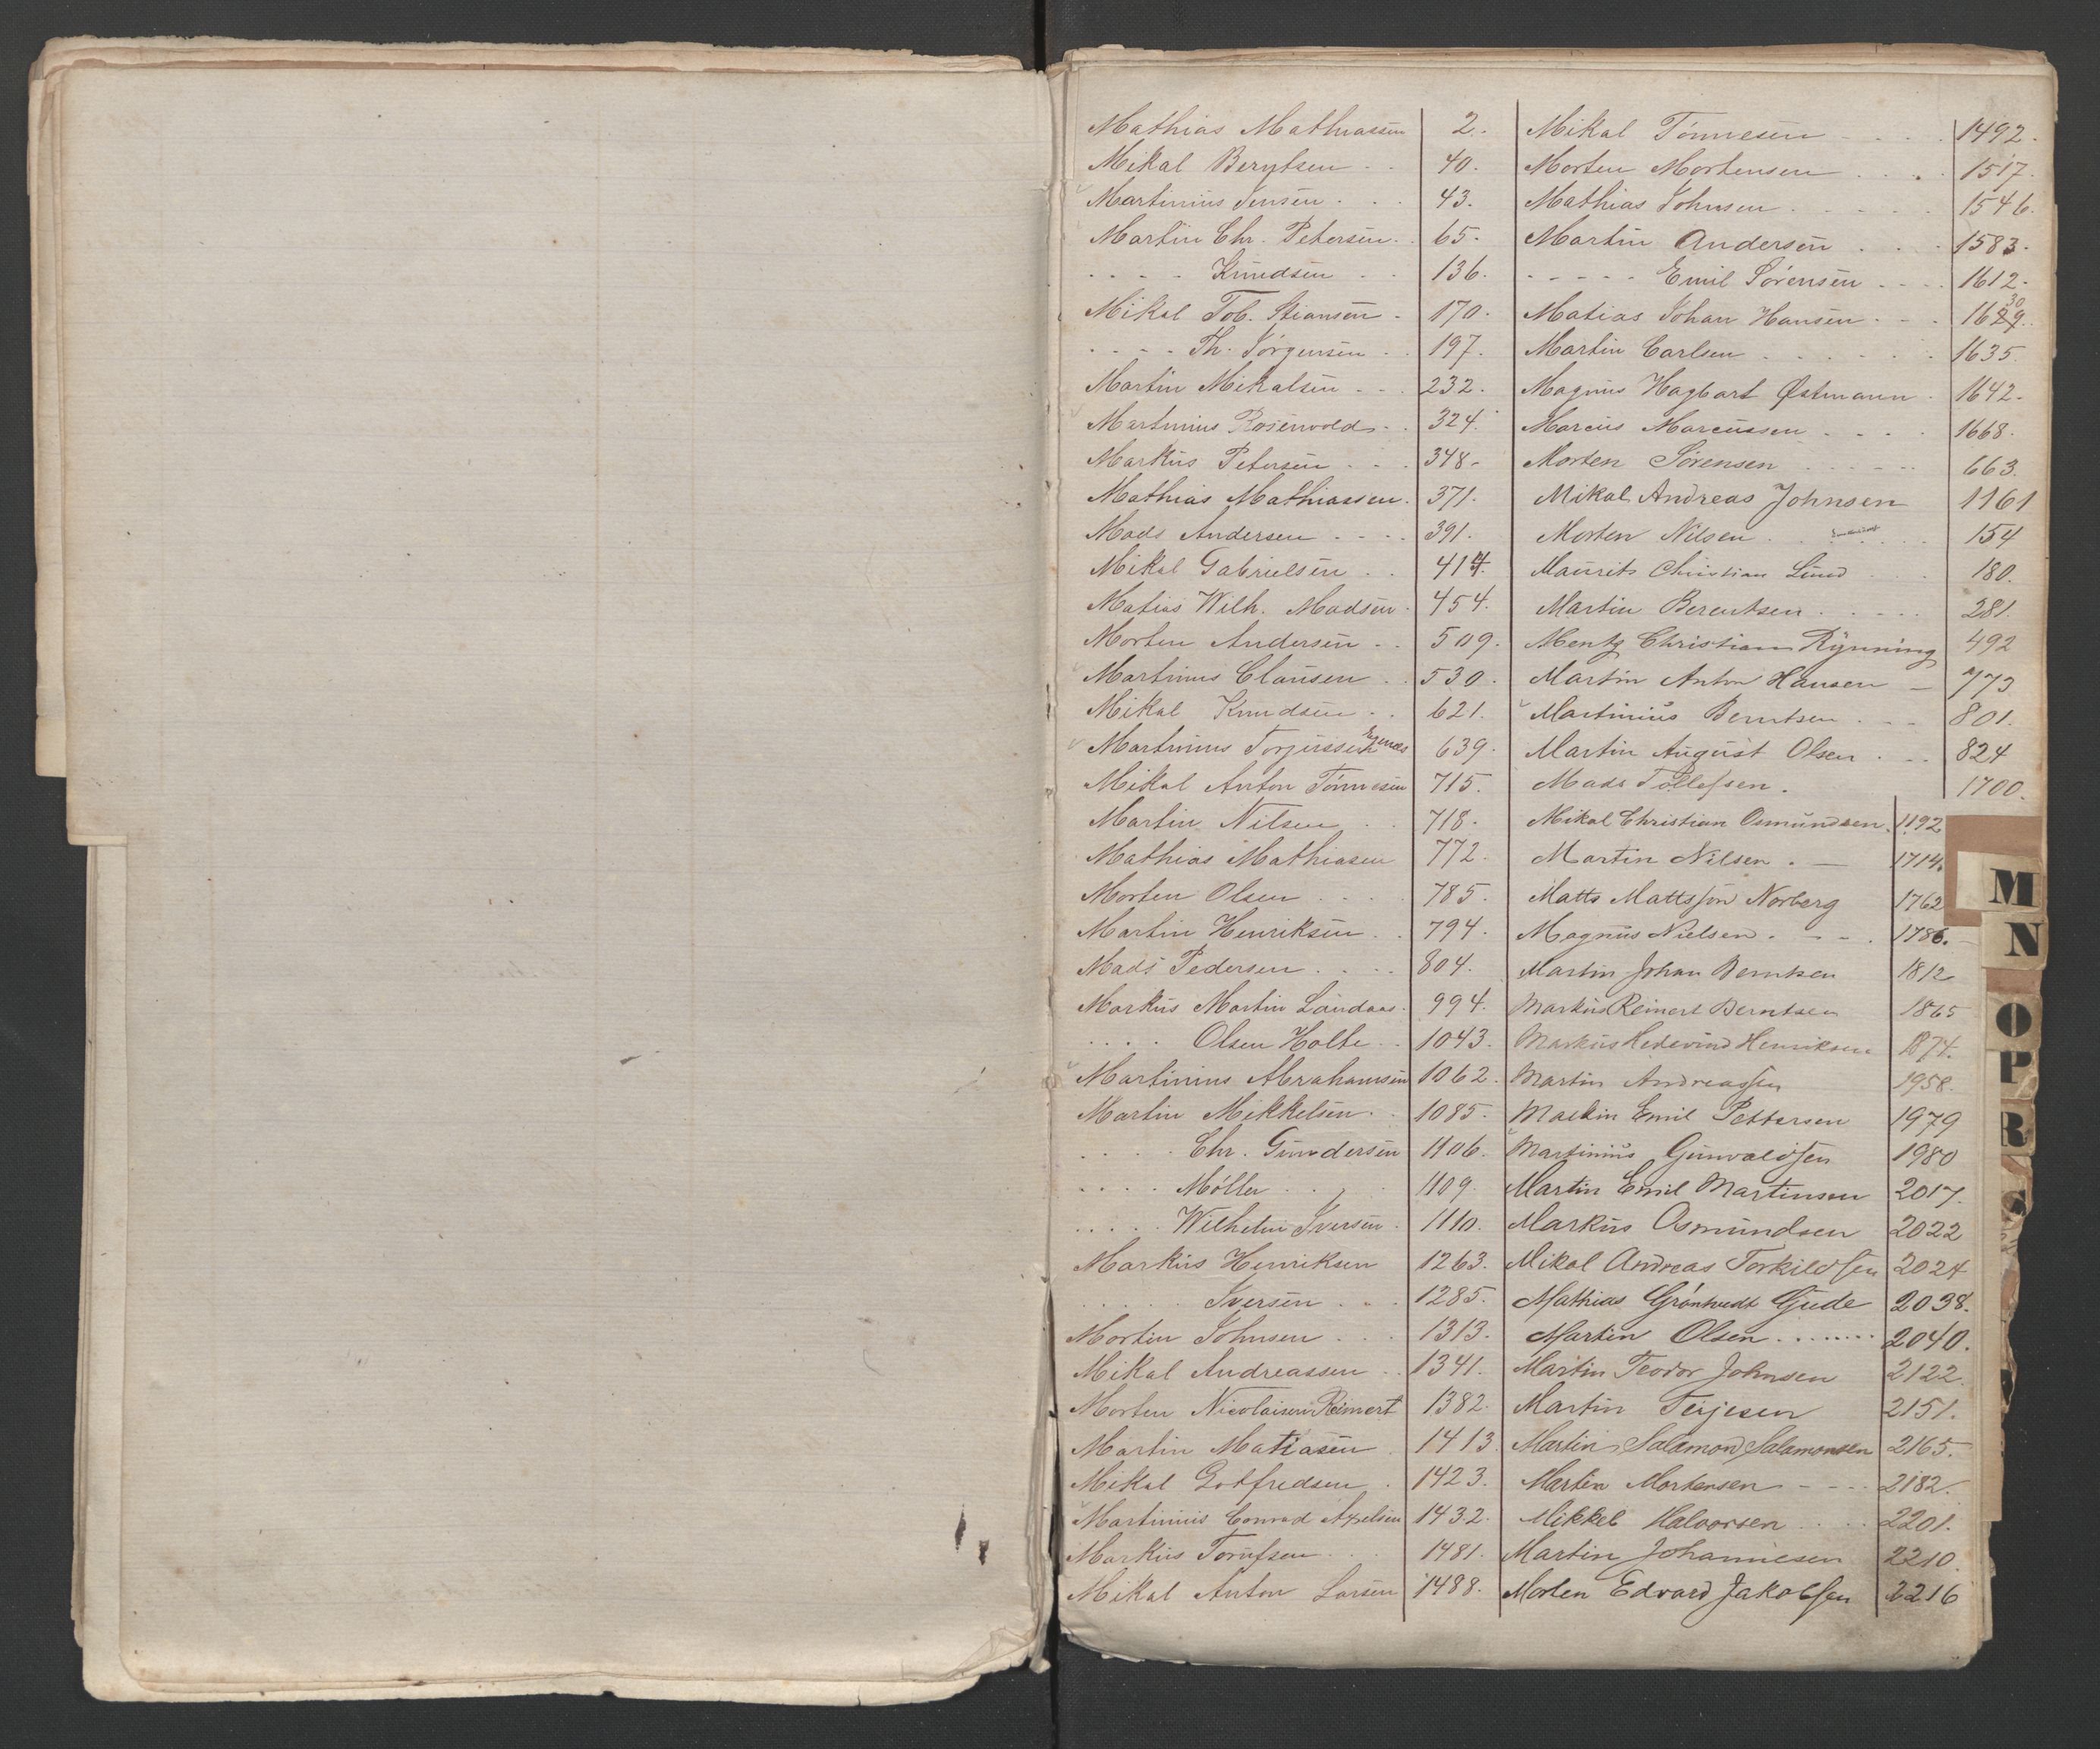 Mathias Mathiassen 2.
Mikal Berntsen . . 40.
Martinius Jensen . . . 43.
Martin Chr. Petersen . . 65.
. . . . Knudsen . . 136.
Mikal Tob. Stiansen . 170.
. . . . Th. Jørgensen . . 197.
Martin Mikalsen . . . 232.
Martinius Rosenvold . . 324.
Markus Petersen . . . 348.
Mathias Mathiassen . 371.
Mads Andersen . . . . 391.
Mikal Gabrielsen . . 414.
Matias Wilh. Madsen . 454.
Morten Andersen . . 509.
Martinius Clausen . . 530.
Mikal Knudsen . . 621.
Martinius Torjussen 639.
Mikal Anton Tönnesen 715.
Martin Nilsen . . 718.
Mathias Mathiasen 772.
Morten Olsen . . . . 785.
Martin Henriksen . . 794.
Mads Pedersen . . . . 804.
Markus Martin Landaas . 994.
. . . . Olsen Holte . . 1043.
Martinius Abrahamsen 1062.
Martin Mikkelsen . . 1085.
. . . . Chr. Gundersen 1106.
. . . . Möller . . . 1109.
. . . . Wilhelm Iversen . 1110.
Markus Henriksen 1263.
. . . . . Iversen . . . 1285.
Morten Johnsen . . . 1313.
Mikal Andreassen . . 1341.
Morten Nicolaisen Reimert 1382.
Martin Matiasen . 1413.
Mikal Gotfredsen . 1423.
Martinius Conrad Axelsen 1432.
Markus Torufsen . . . 1481.
Mikal Anton Larsen 1488.
Mikal Tönnesen . . . . 1492.
Morten Mortensen . . . . 1517.
Mathias Johnsen . . . . . 1546.
Martin Andersen . . . 1583.
. . . . . Emil Sörensen . . . . 1612.
Matias Johan Hansen . . . 1629. 30
Martin Carlsen . . . . . . 1635.
Magnus Hagbart Østmann . 1642.
Marcus Marcussen . . . . 1668.
Morten Sörensen . . . . . 663.
Mikal Andreas Johnsen 1161
Morten Nilsen . . . . . . 154
Maurits Christian Lund . . . 180.
Martin Berentsen . . . . . 281.
Mentz Christian Rynning 492
Martin Anton Hansen — 773
Martinius Berntsen . . . 801.
Martin August Olsen . . . 824
Mads Tollefsen . 1700.
Mikal Christian Osmundsen . 1192
Martin Nilsen . — 1714.
Matts Mattsson Norberg 1762
Magnus Nielsen . — . . 1786.
Martin Johan Berntsen 1812
Markus Reinert Berntsen 1865
Markus Hedevind Henriksen 1874.
Martin Andreassen 1958.
Martin Emil Pettersen 1979
Martinius Gunvaldsen 1980
Martin Emil Martinsen 2017.
Markus Osmundsen 2022
Mikal Andreas Torkildsen 2024
Mathias Gröntvedt Gude 2038.
Martin Olsen . . . . . . . 2040.
Martin Teodor Johnsen 2122.
Martin Terjesen 2151.
Martin Salamon Salamonsen 2165.
Martin Mortensen . . . . 2182.
Mikkel Halvorsen . . . . 2201.
Martin Johannesen 2210.
Morten Edvard Jakobsen 2216
M
N
O
P
R
S